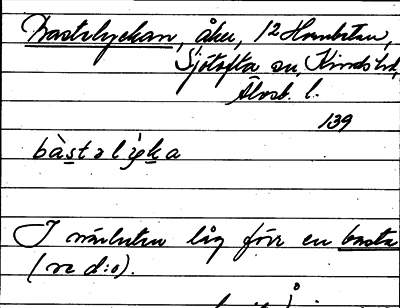 Bastelyckan, åker, 12 Hombeten,
Sjötofta sn, Kinds hd,
Älvsb. l.
139
bàstəlỳka
I närheten låg förr en basta
(se d:o).